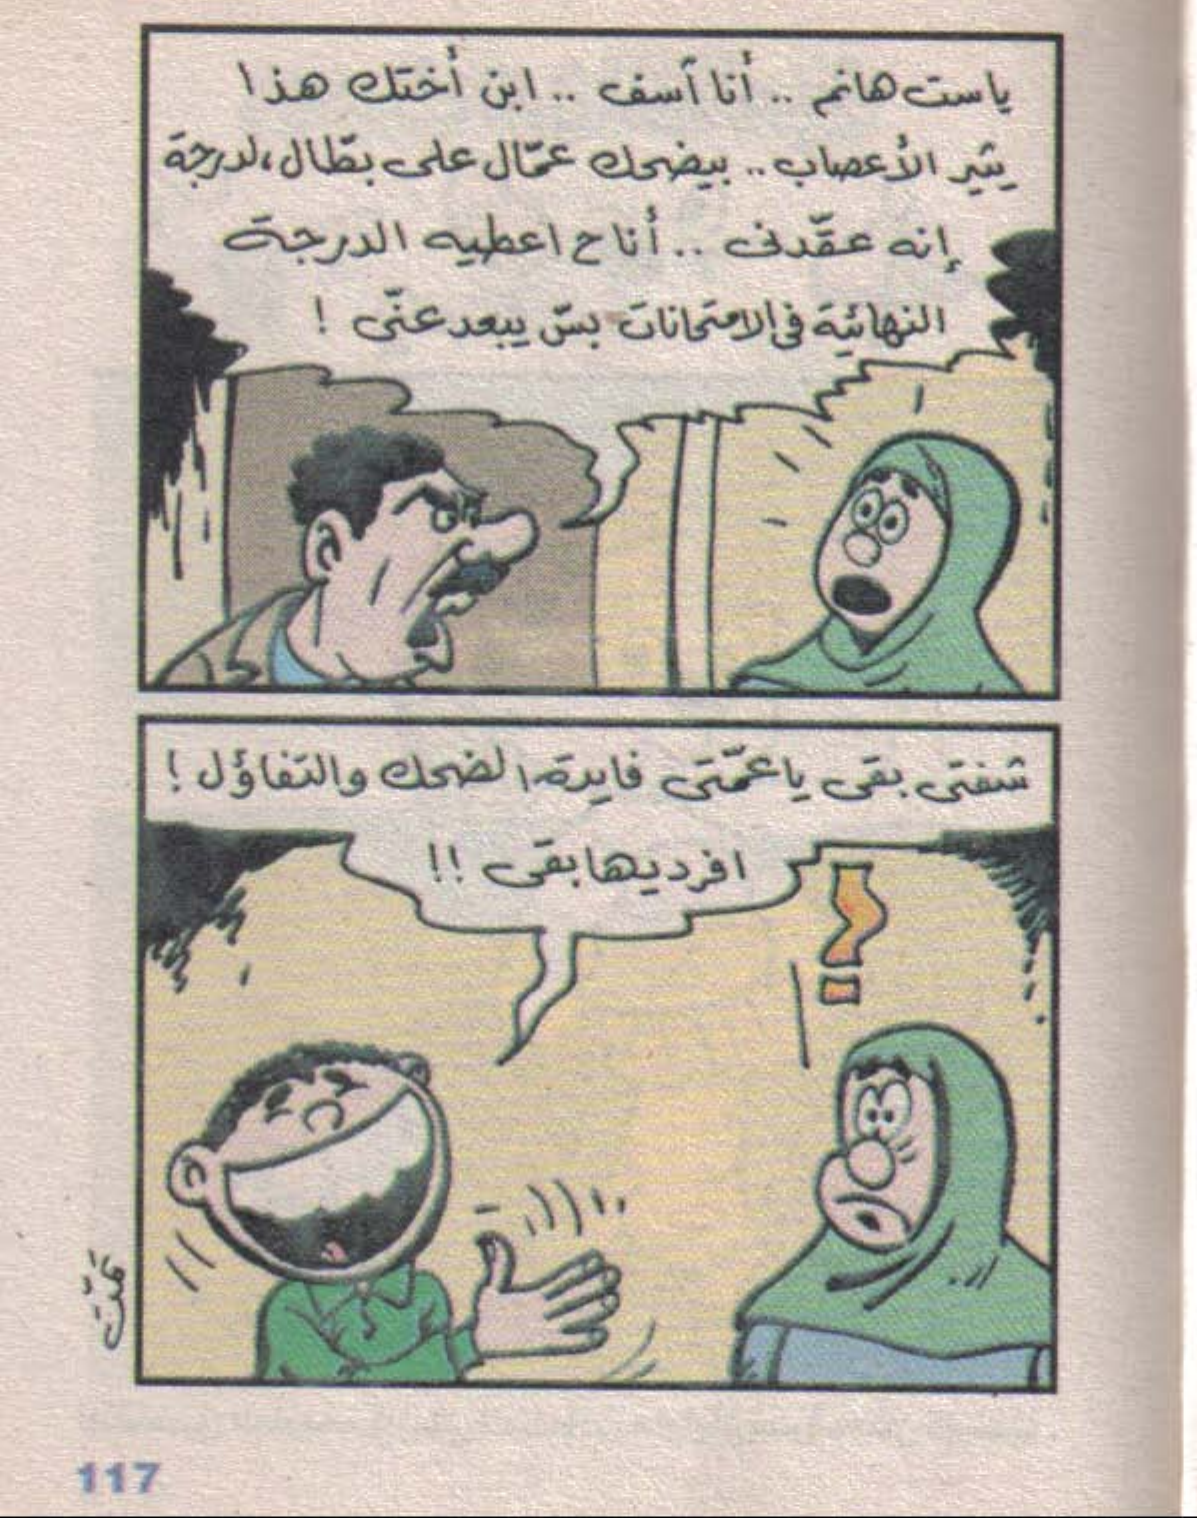 ياست هانم .. أنا آسف .. ابن أختك هذا
يثير الأعصاب .. بيضحك عمّال على بطّال، لدرجة
إنه عقّدنى .. أنا ح اعطيه الدرجة
النهائية فى الامتحانات بسّ يبعد عنّى !
شفتى بقى ياعمّتى فايدة الضحك والتفاؤل !
افرديها بقى !!
؟
117